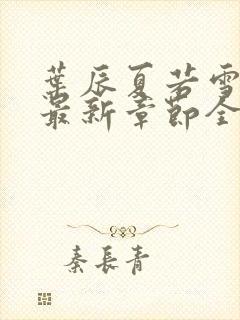 葉辰夏若雪
最新章節全
秦長青